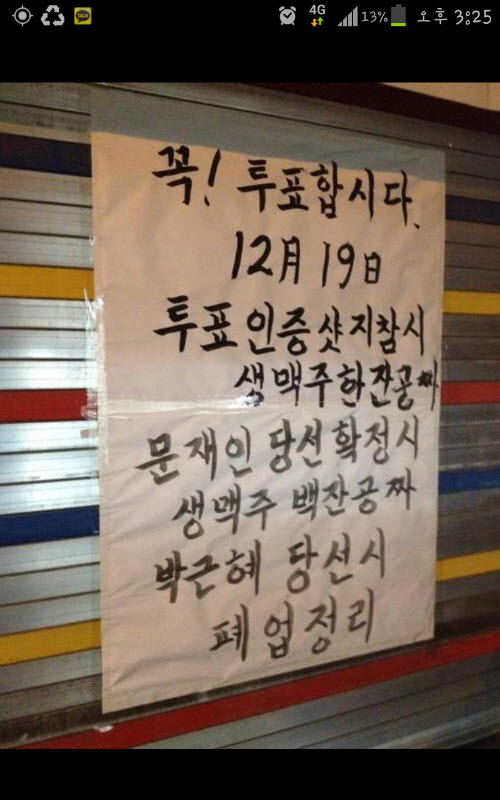 TALK
4G
13%
오후 3:25
꼭! 투표합시다.
12月 19日
투표인증샷지참시
생맥주한잔공짜
문재인 당선확정시
생맥주 백잔공짜
박근혜 당선시
폐업정리